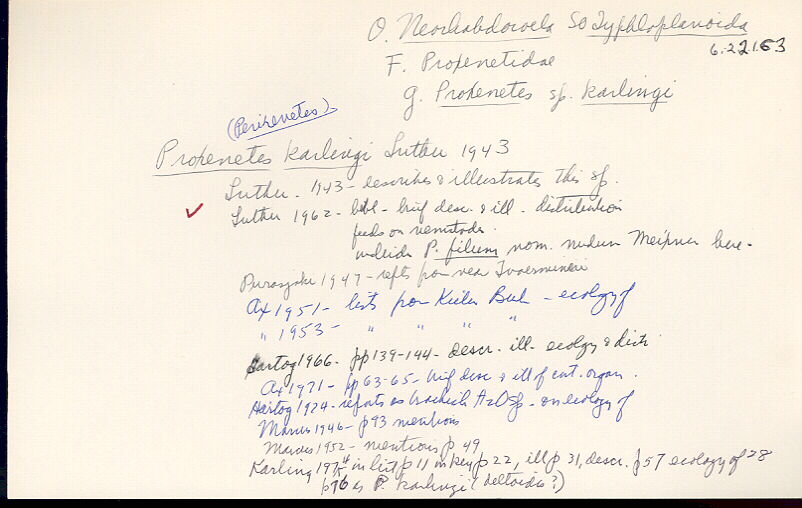 O. Neorhabdocoela SO Typhloplanoida
6.22163
F. Proxenetidae
g. Proxenetes sp. karlingi
(Perixenetes)
Proxenetes karlingi Luther 1943
Luther. 1943 - describes & illustrates this sp.
Luther 1962 - bibl - brief desc. & ill - distribution
feeds on nematodes.
includes P. filum nom. nudum Meixner here -
1947 - repts from near Tvaerminne
Ax 1951 - lists from Kieler Bucht - ecology of
" 1953 - " " " "
Hartog 1966 - pp 139-144 - descr. ill. ecology & distr.
Ax 1971 - pp 63-65 - brief desc & ill of cut. organ.
Hartog 1974 - reports as brackish sp - on ecology of
Marcus 1946 - p 93 mentions
Marcus 1952 - mentions p 49
Karling 1974 in list p 11 in key p 22, ill p 31, descr. p 57 ecology of 28
p76 as P. karlingi (deltoides?)